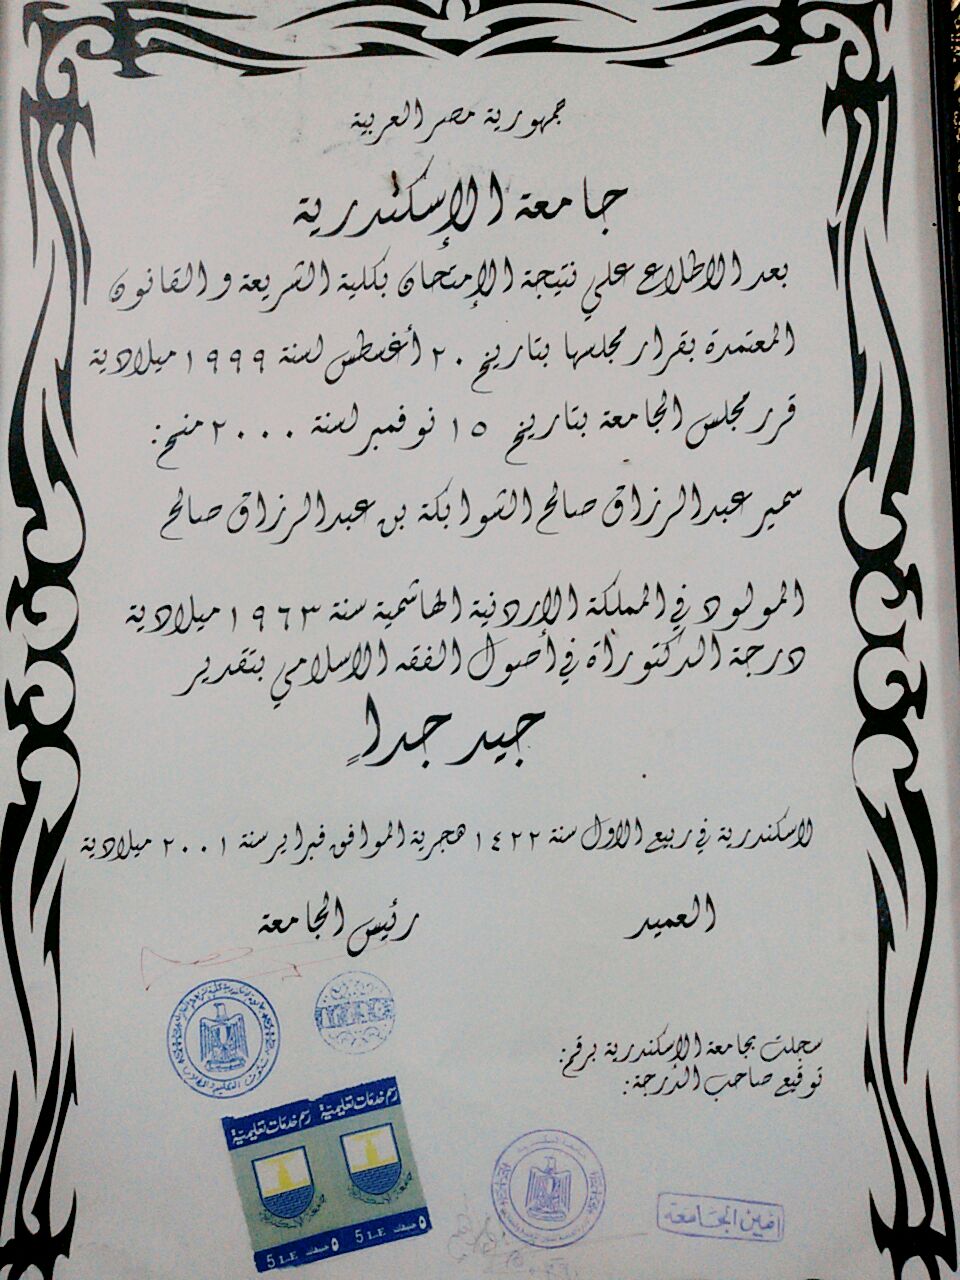 جمهورية مصر العربية
جامعة الإسكندرية
بعد الاطلاع علي نتيجة الإمتحان بكلية الشريعة و القانون
المعتمدة بقرار مجلسها بتاريخ ٢٠ أغسطس لسنة ١٩٩٩ ميلادية
قرر مجلس الجامعة بتاريخ ١٥ نوفمبر لسنة ٢٠٠٠ منح:
سمير عبدالرزاق صالح الشوابكة بن عبدالرزاق صالح
المولود في المملكة الاردنية الهاشمية سنة ١٩٦٣ ميلادية
درجة الدكتوراة في أصول الفقه الاسلامي بتقدير
جيد جداً
لاسكندرية في ربيع الاول سنة ١٤٢٢ هجرية الموافق فبراير سنة ٢٠٠١ ميلادية
العميد
رئيس الجامعة
سجلت بجامعة الاسكندرية برقم:
توقيع صاحب الدرجة:
رسم خدمات تعليمية رسم خدمات تعليمية
5 L.E جنيهات ٥ 5 L.E جنيهات ٥
امين الجامعه